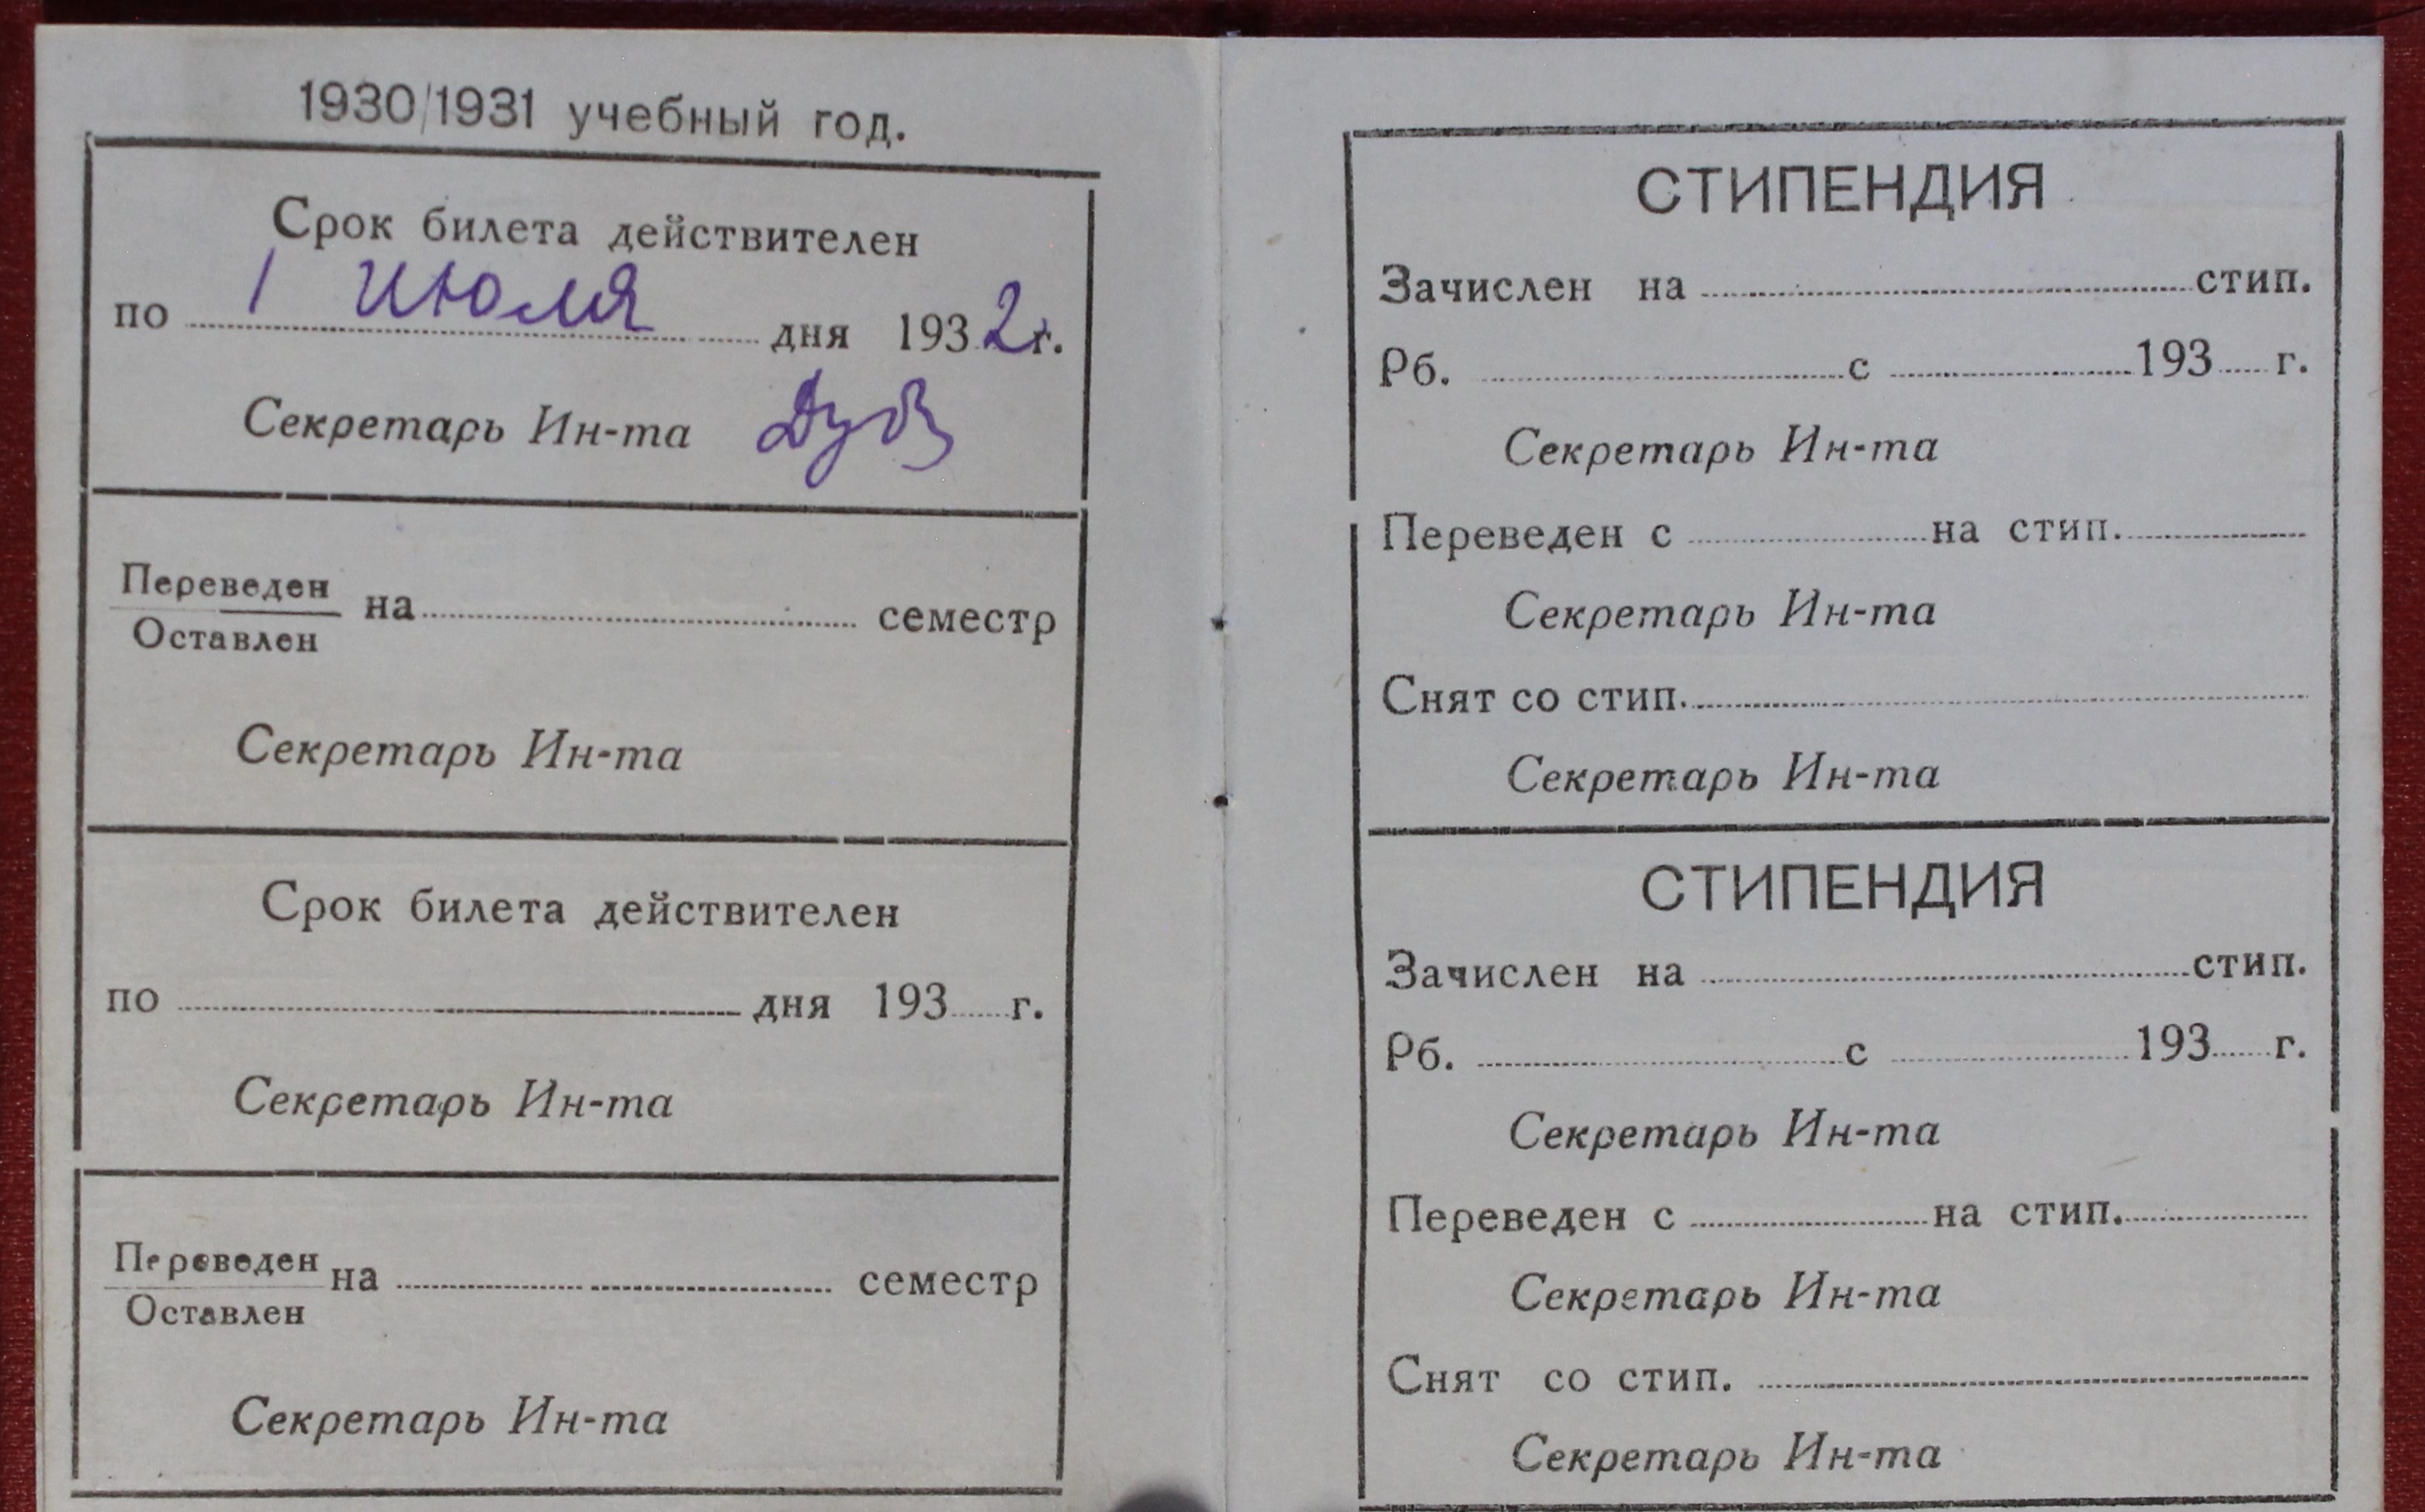 1930/1931 учебный год.
Срок билета действителен
по 1 июля дня 1932 г.
Секретарь Ин-та
Переведен
Оставлен
на семестр
Секретарь Ин-та
Срок билета действителен
по дня 193 г.
Секретарь Ин-та
Переведен
Оставлен
на семестр
Секретарь Ин-та
СТИПЕНДИЯ
Зачислен на стип.
Рб. с 193 г.
Секретарь Ин-та
Переведен с на стип.
Секретарь Ин-та
Снят со стип.
Секретарь Ин-та
СТИПЕНДИЯ
Зачислен на стип.
Рб. с 193 г.
Секретарь Ин-та
Переведен с на стип.
Секретарь Ин-та
Снят со стип.
Секретарь Ин-та